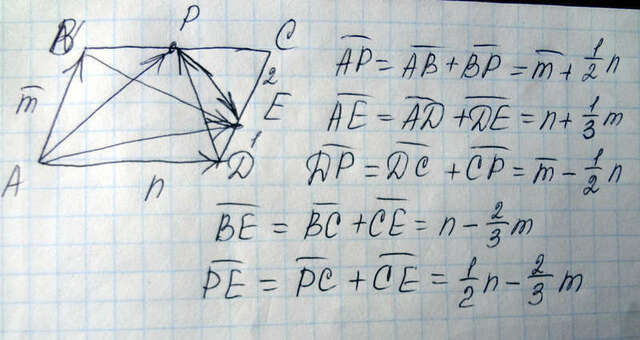 B P C
m̅ 2
E
1
A n D
A̅P̅ = A̅B̅ + B̅P̅ = m̅ + 1/2 n
A̅E̅ = A̅D̅ + D̅E̅ = n + 1/3 m
D̅P̅ = D̅C̅ + C̅P̅ = m̅ - 1/2 n
B̅E̅ = B̅C̅ + C̅E̅ = n - 2/3 m
P̅E̅ = P̅C̅ + C̅E̅ = 1/2 n - 2/3 m